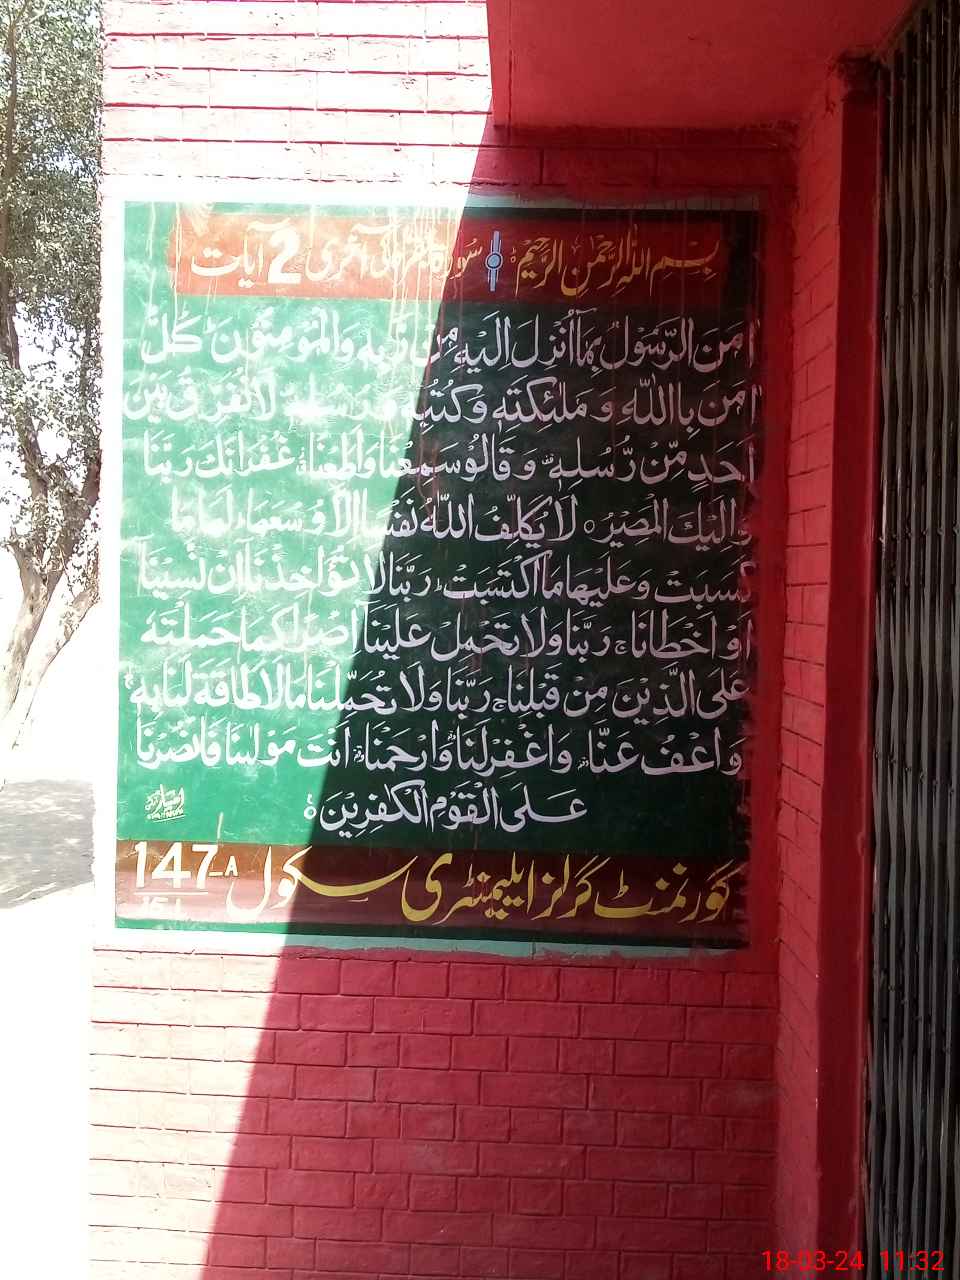 بِسْمِ اللّٰهِ الرَّحْمٰنِ الرَّحِيْمِ سُورۃ البقرۃ کی آخری 2 آیات
اٰمَنَ الرَّسُوْلُ بِمَاۤ اُنْزِلَ اِلَيْهِ مِنْ رَّبِّهٖ وَالْمُؤْمِنُوْنَ كُلٌّ
اٰمَنَ بِاللّٰهِ وَ مَلٰٓئِكَتِهٖ وَكُتُبِهٖ وَرُسُلِهٖ لَا نُفَرِّقُ بَيْنَ
اَحَدٍ مِّنْ رُّسُلِهٖ وَ قَالُوْ سَمِعْنَا وَاَطَعْنَا غُفْرَانَكَ رَبَّنَا
وَاِلَيْكَ الْمَصِيْرُ ○ لَا يُكَلِّفُ اللّٰهُ نَفْسًا اِلَّا وُسْعَهَا لَهَا مَا
كَسَبَتْ وَعَلَيْهَا مَا اكْتَسَبَتْ ط رَبَّنَا لَا تُؤَاخِذْنَاۤ اِنْ نَّسِيْنَاۤ
اَوْ اَخْطَاْنَا ج رَبَّنَا وَلَا تَحْمِلْ عَلَيْنَاۤ اِصْرًا كَمَا حَمَلْتَهٗ
عَلَى الَّذِيْنَ مِنْ قَبْلِنَا ج رَبَّنَا وَلَا تُحَمِّلْنَا مَا لَا طَاقَةَ لَنَا بِهٖ
وَاعْفُ عَنَّا وَاغْفِرْلَنَا وَارْحَمْنَا اَنْتَ مَوْلٰىنَا فَانْصُرْنَا
عَلَى الْقَوْمِ الْكٰفِرِيْنَ ○
گورنمنٹ گرلز ایلیمنٹری سکول 147-A
18-03-24 11:32